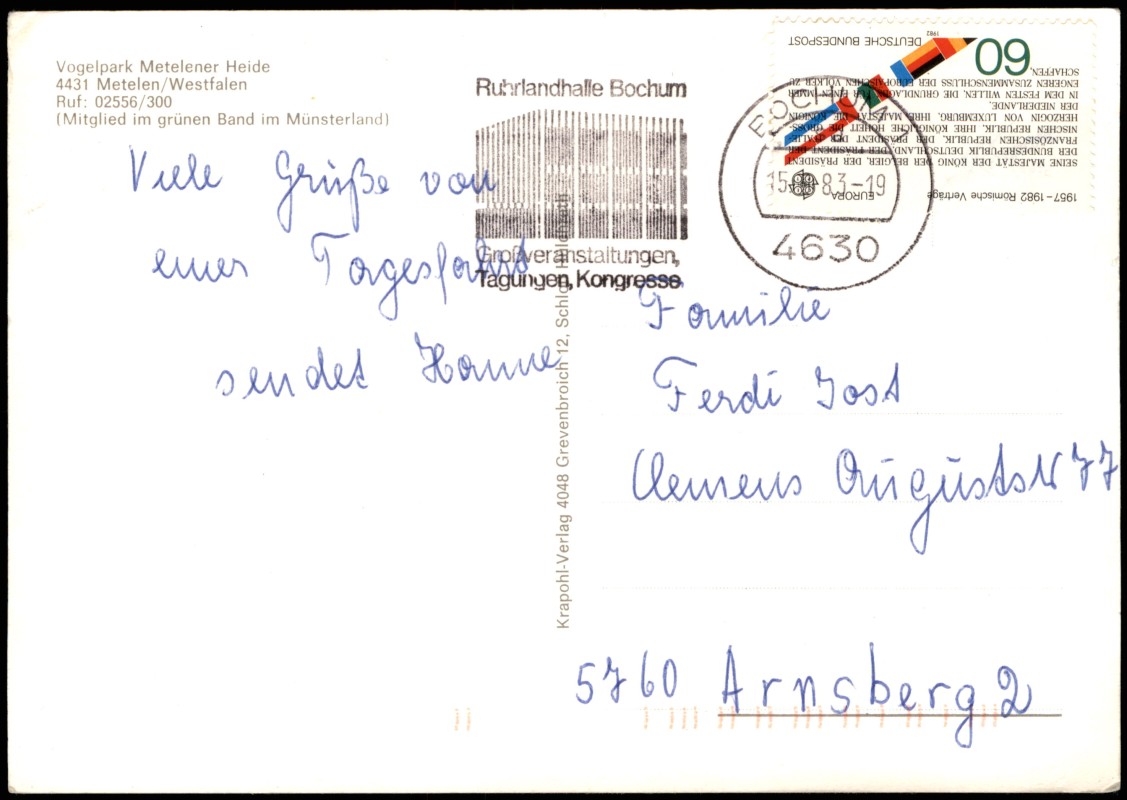 Vogelpark Metelener Heide
4431 Metelen/Westfalen
Ruf: 02556/300
(Mitglied im grünen Band im Münsterland)
Viele Grüße von
einer Tagesfahrt
sendet Hanne
Ruhrlandhalle Bochum
Großveranstaltungen,
Tagungen, Kongresse
BOCHUM
83-19
4630
1957-1982 Römische Verträge
EUROPA
SEINE MAJESTÄT DER KÖNIG DER BELGIER, DER PRÄSIDENT
DER BUNDESREPUBLIK DEUTSCHLAND, DER PRÄSIDENT DER
FRANZÖSISCHEN REPUBLIK, DER PRÄSIDENT DER ITALIE-
NISCHEN REPUBLIK, IHRE KÖNIGLICHE HOHEIT DIE GROSS-
HERZOGIN VON LUXEMBURG, IHRE MAJESTÄT DIE KÖNIGIN
DER NIEDERLANDE,
IN DEM FESTEN WILLEN, DIE GRUNDLAGEN FÜR EINEN IMMER
ENGEREN ZUSAMMENSCHLUSS DER EUROPÄISCHEN VÖLKER ZU
SCHAFFEN,
60
DEUTSCHE BUNDESPOST
1982
Krapohl-Verlag 4048 Grevenbroich 12, Schloß
Familie
Ferdi Jost
Clemens Auguststr 77
5760 Arnsberg 2